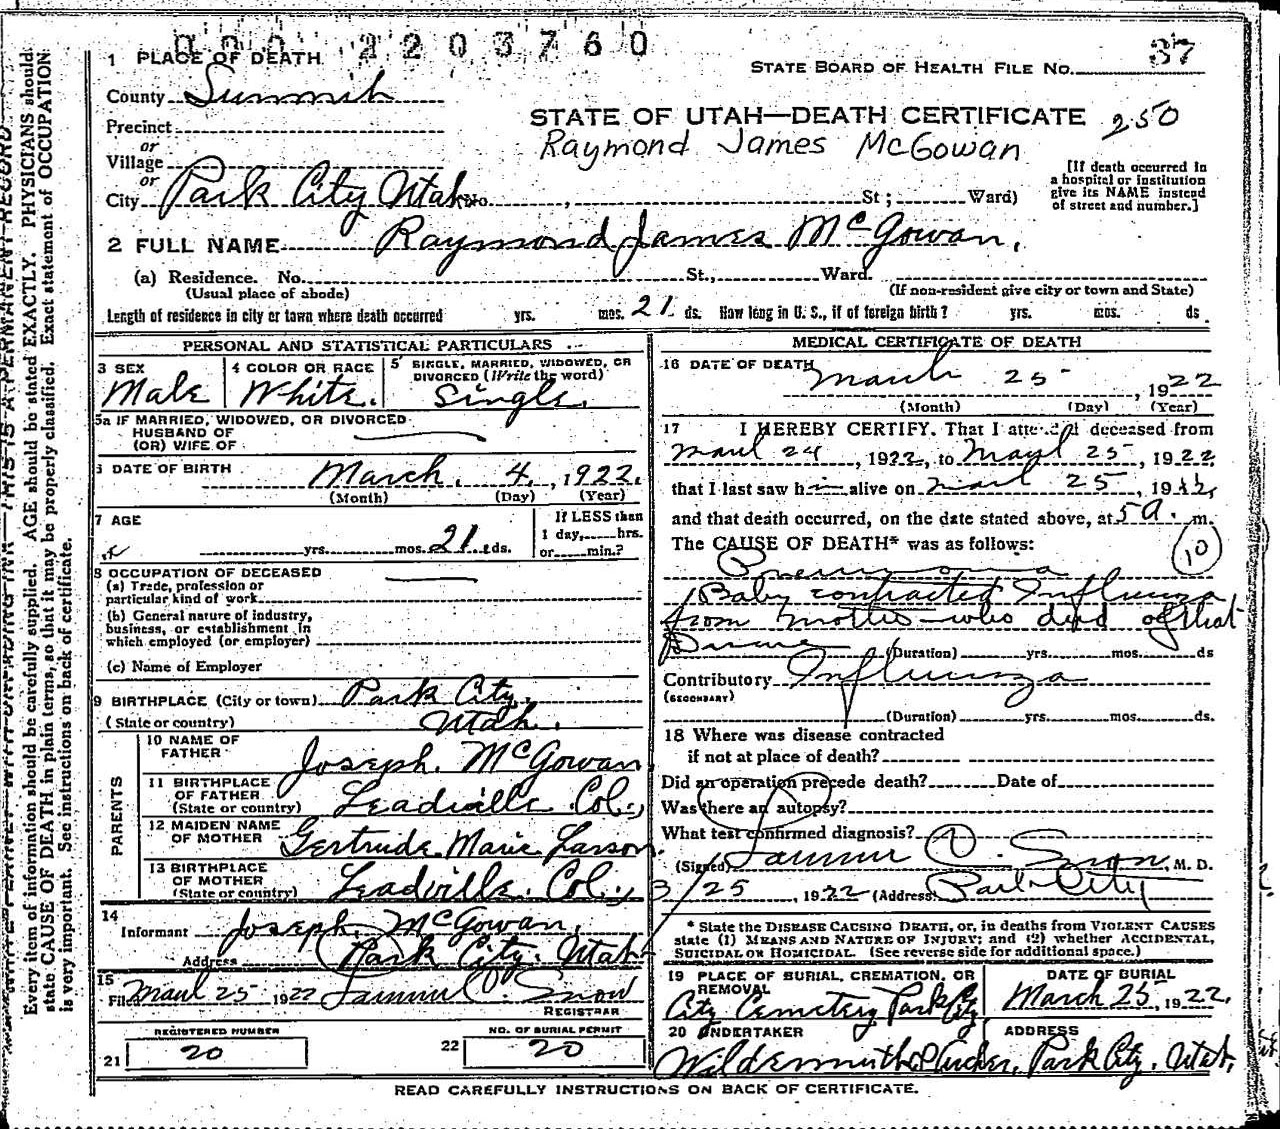 000 2203760
1 PLACE OF DEATH
STATE BOARD OF HEALTH FILE No. 37
County Summit
STATE OF UTAH—DEATH CERTIFICATE 250
Precinct
Raymond James McGowan
or
Village
or
City Park City Utah No. , St ; Ward)
[If death occurred in
a hospital or institution
give its NAME instead
of street and number.]
2 FULL NAME Raymond James McGowan.
(a) Residence. No. St., Ward.
(Usual place of abode) (If non-resident give city or town and State)
Length of residence in city or town where death occurred yrs. mos. 21 ds. How long in U. S., if of foreign birth? yrs. mos. ds.
PERSONAL AND STATISTICAL PARTICULARS
3 SEX
Male
4 COLOR OR RACE
White.
5 SINGLE, MARRIED, WIDOWED, OR
DIVORCED (Write the word)
Single.
5a IF MARRIED, WIDOWED, OR DIVORCED
HUSBAND OF
(OR) WIFE OF
6 DATE OF BIRTH March. 4, 1922.
(Month) (Day) (Year)
7 AGE
yrs. mos. 21 ds.
If LESS than
1 day, hrs.
or min.?
8 OCCUPATION OF DECEASED
(a) Trade, profession or
particular kind of work
(b) General nature of industry,
business, or establishment in
which employed (or employer)
(c) Name of Employer
9 BIRTHPLACE (City or town) Park City.
(State or country) Utah.
PARENTS
10 NAME OF
FATHER Joseph. McGowan
11 BIRTHPLACE
OF FATHER
(State or country) Leadville Col.,
12 MAIDEN NAME
OF MOTHER Gertrude Marie Larson.
13 BIRTHPLACE
OF MOTHER
(State or country) Leadville. Col.,
14
Informant Joseph. McGowan,
Address Park City. Utah
15
Filed March 25 1922 Samuel Snow
REGISTRAR
REGISTERED NUMBER
21 20
NO. OF BURIAL PERMIT
22 20
MEDICAL CERTIFICATE OF DEATH
16 DATE OF DEATH March 25, 1922
(Month) (Day) (Year)
17 I HEREBY CERTIFY. That I attended deceased from
March 24, 1922, to March 25, 1922
that I last saw him alive on March 25, 1922,
and that death occurred, on the date stated above, at 5 a. m.
The CAUSE OF DEATH* was as follows: 10
Pneumonia
Baby contracted Influenza
from mother who died of that
Disease
(Duration) yrs. mos. ds
Contributory Influenza
(SECONDARY)
(Duration) yrs. mos. ds.
18 Where was disease contracted
if not at place of death?
Did an operation precede death? Date of
Was there an autopsy?
What test confirmed diagnosis?
(Signed) Snow, M. D.
3/25, 1922 (Address) Park City
* State the DISEASE CAUSING DEATH, or, in deaths from VIOLENT CAUSES
state (1) MEANS AND NATURE OF INJURY; and (2) whether ACCIDENTAL,
SUICIDAL OR HOMICIDAL. (See reverse side for additional space.)
19 PLACE OF BURIAL, CREMATION, OR
REMOVAL
City Cemetery Park City
DATE OF BURIAL
March 25, 1922.
20 UNDERTAKER
ADDRESS
Park City. Utah,
READ CAREFULLY INSTRUCTIONS ON BACK OF CERTIFICATE.
Every item of information should be carefully supplied. AGE should be stated EXACTLY. PHYSICIANS should
state CAUSE OF DEATH in plain terms, so that it may be properly classified. Exact statement of OCCUPATION
is very important. See instructions on back of certificate.